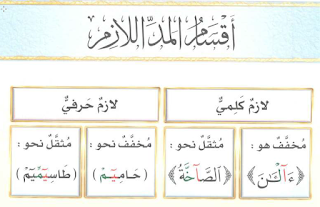 أَقْسَامُ المَدِّ اللَّازِمِ
لازمٌ كَلِميٌّ
لازمٌ حَرفيٌّ
مُخفَّف هو :
﴿ءَآلْـَٰٔنَ﴾
مُثقلٌ نحو :
﴿ٱلصَّآخَّةُ﴾
مُخفَّفٌ نحو :
(حَامِيٓـمْ)
مُثقلٌ نحو :
(طَاسِيٓمِّيٓمْ)